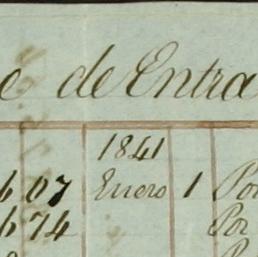 e de Entra
1841
6 07 Enero 1 Por
6 74 Por